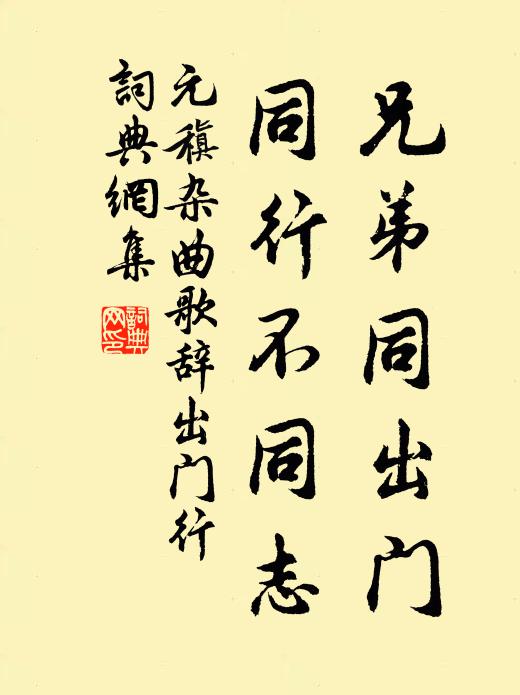 兄弟同出门
同行不同志
元稹杂曲歌辞出门行
詞典網集
詞典
网印